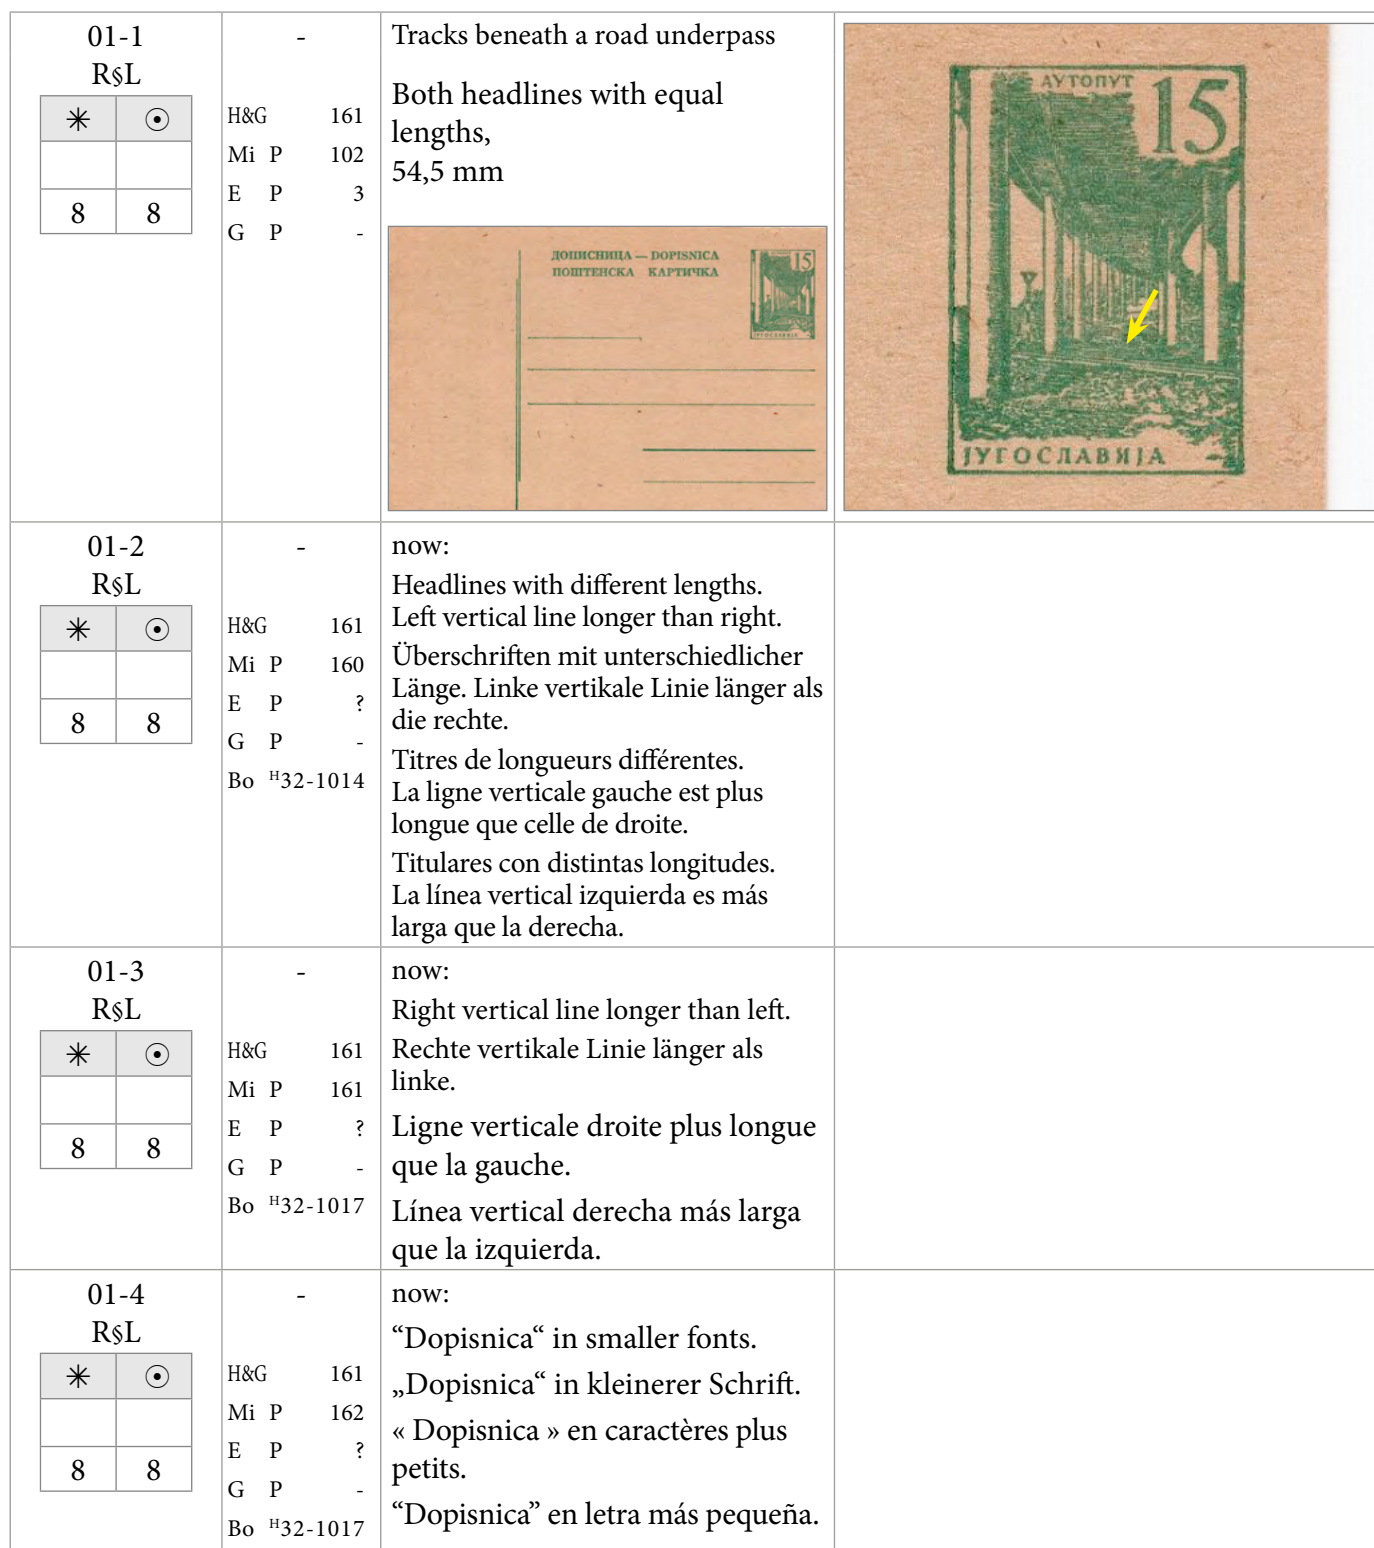 01-1
R§L
✳ ⊙
8 8
-
H&G 161
Mi P 102
E P 3
G P -
Tracks beneath a road underpass
Both headlines with equal
lengths,
54,5 mm
ДОПИСНИЦА — DOPISNICA
ПОШТЕНСКА КАРТИЧКА
15
ЈУГОСЛАВИЈА
АУТОПУТ
15
ЈУГОСЛАВИЈА
01-2
R§L
✳ ⊙
8 8
-
H&G 161
Mi P 160
E P ?
G P -
Bo H32-1014
now:
Headlines with different lengths.
Left vertical line longer than right.
Überschriften mit unterschiedlicher
Länge. Linke vertikale Linie länger als
die rechte.
Titres de longueurs différentes.
La ligne verticale gauche est plus
longue que celle de droite.
Titulares con distintas longitudes.
La línea vertical izquierda es más
larga que la derecha.
01-3
R§L
✳ ⊙
8 8
-
H&G 161
Mi P 161
E P ?
G P -
Bo H32-1017
now:
Right vertical line longer than left.
Rechte vertikale Linie länger als
linke.
Ligne verticale droite plus longue
que la gauche.
Línea vertical derecha más larga
que la izquierda.
01-4
R§L
✳ ⊙
8 8
-
H&G 161
Mi P 162
E P ?
G P -
Bo H32-1017
now:
“Dopisnica“ in smaller fonts.
„Dopisnica“ in kleinerer Schrift.
« Dopisnica » en caractères plus
petits.
“Dopisnica” en letra más pequeña.